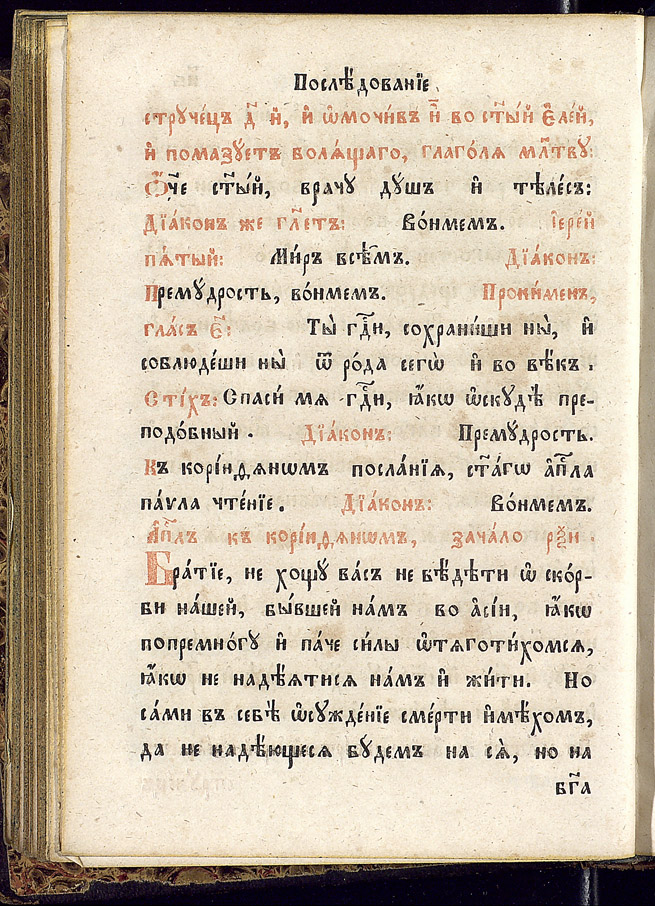 Послѣ́дованїе
стручє́цъ д҃ й, и҆ ѡ҆мочи́въ и҆̀ во ст҃ы́й є҆ле́й,
и҆ помазꙋетъ болѧ́щаго, глаго́лѧ мл҃твꙋ:
Ѻ҆́ч҃е ст҃ы́й, врачꙋ̀ дꙋ́шъ и҆ тѣле́съ:
Дїа́конъ же гл҃етъ: Во́нмемъ. І҆ере́й
пѧ́тый: Ми́ръ всѣ̑мъ. Дїа́конъ:
Премꙋ́дрость, во́нмемъ. Проки́менъ,
гла́съ є҃: Ты̀ гд҃и, сохрани́ши ны̀, и҆
соблюде́ши ны̀ ѿ ро́да сегѡ̀ и҆ во вѣ́къ.
Сті́хъ: Спаси́ мѧ гд҃и, ꙗ҆́кѡ ѡ҆скꙋдѣ̀ пре-
подо́бный. Дїа́конъ: Премꙋ́дрость.
Къ корі́нѳѧнѡмъ посла́нїѧ, ст҃а́гѡ а҆п҃ла
па́ѵла чте́нїе. Дїа́конъ: Во́нмемъ.
А҆п҃лъ къ корі́нѳѧнѡмъ, зача́ло рѯ҃и.
Бра́тїе, не хощꙋ̀ ва́съ не вѣ́дѣти ѡ҆ ско́р-
би на́шей, бы́вшей на́мъ во а҆сі́и, ꙗ҆́кѡ
попремно́гꙋ и҆ па́че си́лы ѡ҆тѧготи́хомсѧ,
ꙗ҆́кѡ не надѣ́ѧтисѧ на́мъ и҆ жи́ти. Но
са́ми въ себѣ̀ ѡ҆сꙋжде́нїе сме́рти и҆мѣ́хомъ,
да не надѣ́ющесѧ бꙋ́демъ на сѧ̀, но на
бг҃а